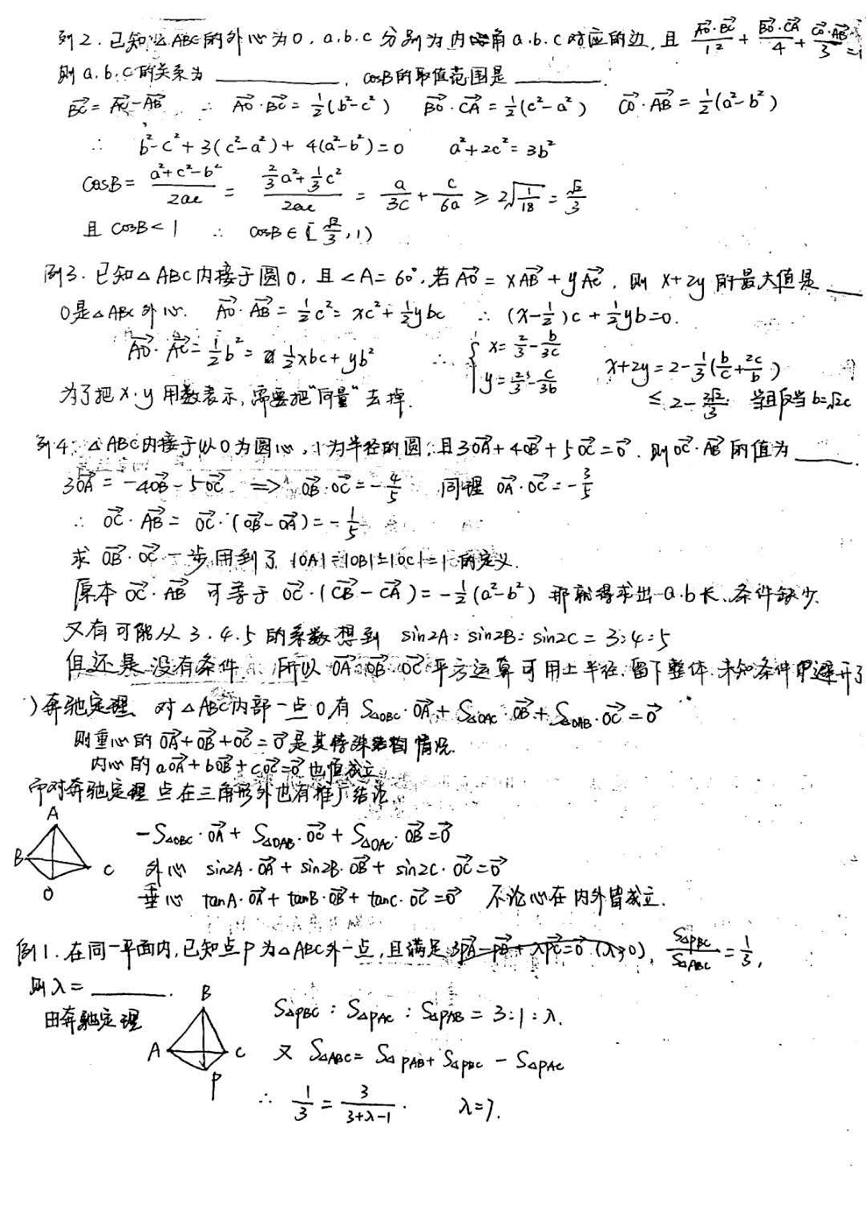 例2. 已知△ABC的外心为O, a.b.c 分别为内角a.b.c对应的边, 且 AO·BC/12 + BO·CA/4 + CO·AB/3 =
则 a.b.c的关系为 ______, cosB的取值范围是 ______.
BC = AC - AB ∴ AO·BC = 1/2(b²-c²) BO·CA = 1/2(c²-a²) CO·AB = 1/2(a²-b²)
∴ b²-c²+3(c²-a²)+4(a²-b²)=0 a²+2c²=3b²
cosB = (a²+c²-b²)/2ac = (2/3a²+1/3c²)/2ac = a/3c + c/6a ≥ 2√(1/18) = √2/3
且 cosB<1 ∴ cosB∈[√2/3, 1)
例3. 已知△ABC内接于圆O, 且∠A=60°, 若AO = xAB + yAC, 则 x+2y 的最大值是 ___
O是△ABC外心. AO·AB = 1/2c² = xc²+1/2ybc ∴ (x-1/2)c+1/2yb=0.
AO·AC = 1/2b² = 1/2xbc+yb² ∴ { x=2/3-b/3c y=2/3-c/3b x+2y=2-1/3(b/c+2c/b)
为了把x.y用数表示, 需要把"向量"去掉. ≤2-2√2/3 当且仅当b=√2c
例4. △ABC内接于以O为圆心, 1为半径的圆, 且3OA+4OB+5OC=0. 则OC·AB的值为 ____.
3OA = -4OB-5OC ⟹ OB·OC = -4/5 同理 OA·OC = -3/5
∴ OC·AB = OC·(OB-OA) = -1/5
求 OB·OC一步用到了 |OA|=|OB|=|OC|=1的定义.
原本 OC·AB 可等于 OC·(CB-CA) = -1/2(a²-b²) 那就得求出a.b长, 条件缺少.
又有可能从 3.4.5 的系数想到 sin2A:sin2B:sin2C=3:4:5
但还是没有条件. 所以 OA.OB.OC平方运算可用上半径. 留下整体. 未知条件中避开了
)奔驰定理 对△ABC内部一点O有 S△OBC·OA+S△OAC·OB+S△OAB·OC=0
则重心的OA+OB+OC=0是其特殊结构情况.
内心的aOA+bOB+cOC=0也恒成立
而对奔驰定理 点在三角形外也有推广结论.
A
B C
O
-S△OBC·OA+S△OAB·OC+S△OAC·OB=0
外心 sin2A·OA+sin2B·OB+sin2C·OC=0
垂心 tanA·OA+tanB·OB+tanC·OC=0 不论心在内外皆成立.
例1. 在同一平面内, 已知点P为△ABC外一点, 且满足3PA-PB+λPC=0 (λ>0), S△PBC/S△ABC=1/3,
则λ= ______.
由奔驰定理
B
A C
P
S△PBC : S△PAC : S△PAB = 3:1:λ.
又 S△ABC = S△PAB+S△PBC - S△PAC
∴ 1/3 = 3/(3+λ-1). λ=7.